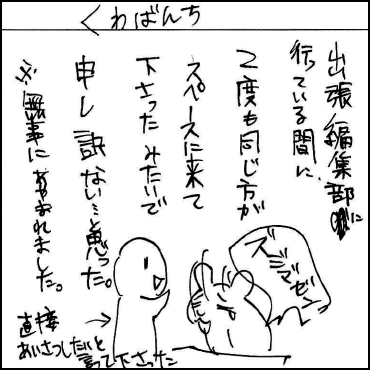 くわばんち
出張編集部に
行っている間に、
2度も同じ方が
スペースに来て
下さったみたいで
申し訳ない…と思った。
※無事に会われました。
ズミマゼン
直接
あいさつしたいと
言って下さった